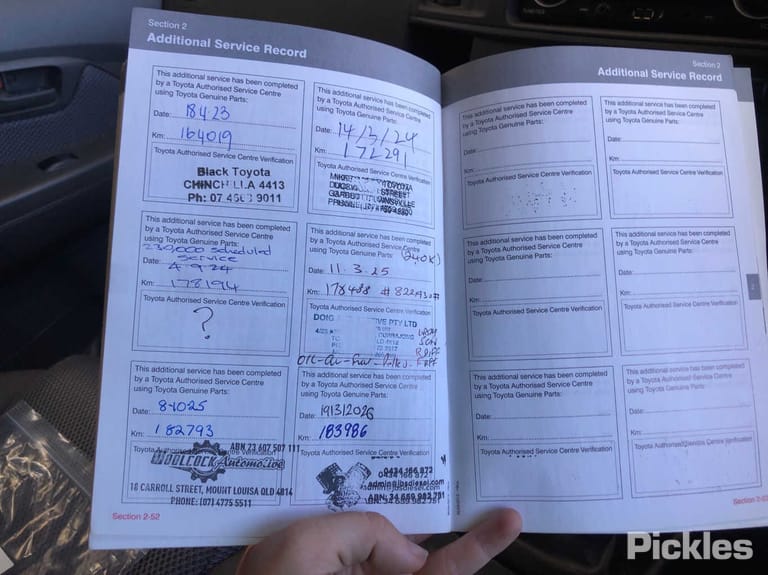 Section 2
Additional Service Record
This additional service has been completed
by a Toyota Authorised Service Centre
using Toyota Genuine Parts:
Date: 18423
Km: 164019
Toyota Authorised Service Centre Verification
Black Toyota
CHINCHILLA 4413
Ph: 07 9011
This additional service has been completed
by a Toyota Authorised Service Centre
using Toyota Genuine Parts:
Date: 14/3/24
Km: 171291
Toyota Authorised Service Centre Verification
STREET
This additional service has been completed
by a Toyota Authorised Service Centre
using Toyota Genuine Parts:
230,000 scheduled
service
Date: 4.9.24
Km: 178194
Toyota Authorised Service Centre Verification
?
This additional service has been completed
by a Toyota Authorised Service Centre
using Toyota Genuine Parts: (240K)
Date: 11.3.25
Km: 178488
Toyota Authorised Service Centre Verification
PTY LTD
This additional service has been completed
by a Toyota Authorised Service Centre
using Toyota Genuine Parts:
Date:
Km: 182793
Toyota Authorised Service Centre Verification
ABN 23 607 507 111
WOOLCOCK Automotive
18 CARROLL STREET, MOUNT LOUISA QLD 4814
PHONE: (07) 4775 5511
This additional service has been completed
by a Toyota Authorised Service Centre
using Toyota Genuine Parts:
Date: 19/3/2026
Km: 183986
Toyota Authorised Service Centre Verification
0434 166 872
admin@jbsdiesel.com
ABN: 34 659 982 781
Section 2-52
Section 2
Additional Service Record
This additional service has been completed
by a Toyota Authorised Service Centre
using Toyota Genuine Parts:
Date:
Km:
Toyota Authorised Service Centre Verification
This additional service has been completed
by a Toyota Authorised Service Centre
using Toyota Genuine Parts:
Date:
Km:
Toyota Authorised Service Centre Verification
This additional service has been completed
by a Toyota Authorised Service Centre
using Toyota Genuine Parts:
Date:
Km:
Toyota Authorised Service Centre Verification
This additional service has been completed
by a Toyota Authorised Service Centre
using Toyota Genuine Parts:
Date:
Km:
Toyota Authorised Service Centre Verification
This additional service has been completed
by a Toyota Authorised Service Centre
using Toyota Genuine Parts:
Date:
Km:
Toyota Authorised Service Centre Verification
This additional service has been completed
by a Toyota Authorised Service Centre
using Toyota Genuine Parts:
Date:
Km:
Toyota Authorised Service Centre Verification
Pickles